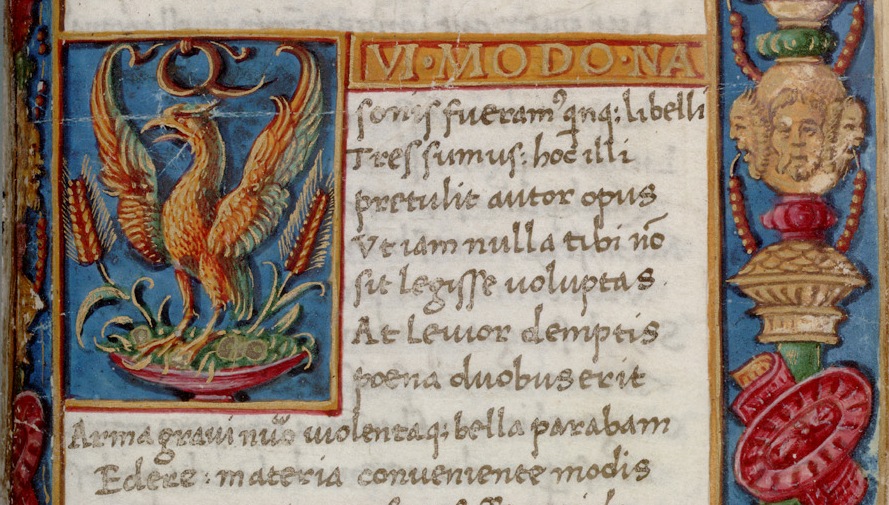 VI·MODO·NA
sonis fueramꝰ qnq; libelli
Tres sumus: hoc illi
pretulit autor opus
Vt iam nulla tibi nō
sit legisse uoluptas.
At leuior demptis
poena duobus erit
Arma graui nuo uiolentaq; bella parabam
Edere: materia conueniente modis